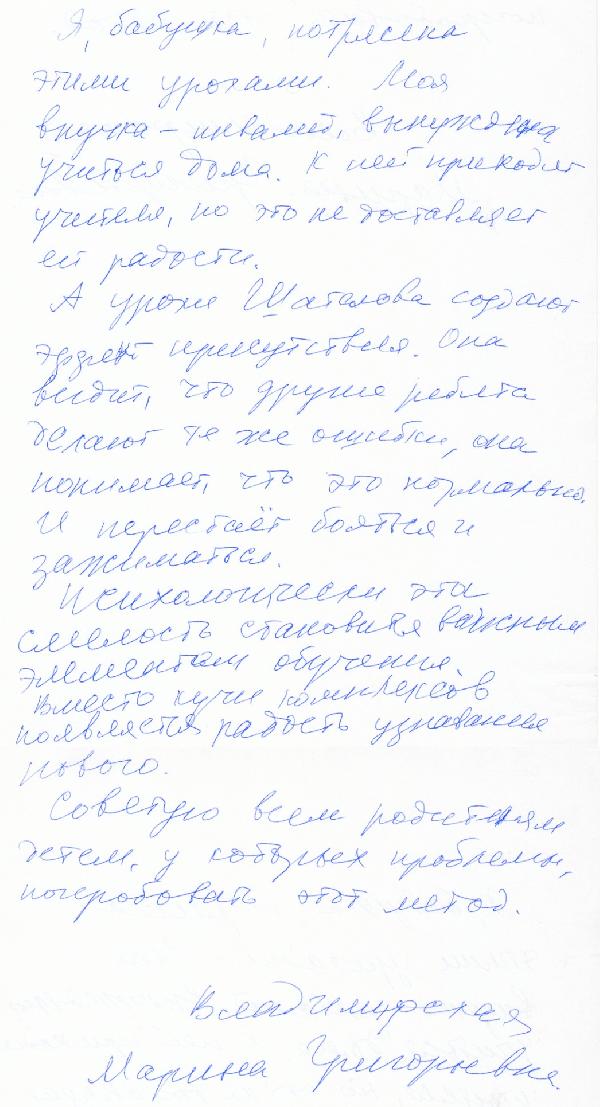 Я, бабушка, потрясена
этими уроками. Моя
внучка – инвалид, вынуждена
учиться дома. К ней приходят
учителя, но это не доставляет
ей радости.
А уроки Шаталова создают
эффект присутствия. Она
видит, что другие ребята
делают те же ошибки, она
понимает, что это нормально.
И перестаёт бояться и
зажиматься.
Психологически эта
смелость становится важным
элементом обучения.
Вместо кучи комплексов
появляется радость узнавания
нового.
Советую всем родителям
детей, у которых проблемы,
попробовать этот метод.
Владимирская
Марина Григорьевна.